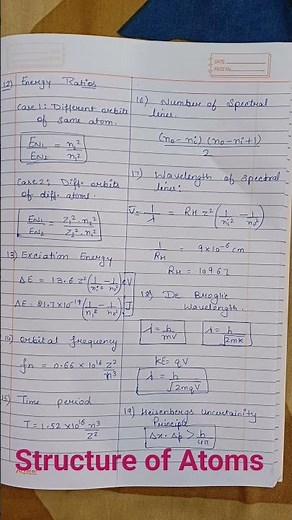 12) Energy Ratios
Case 1: Different orbits
of same atom.
EN1/EN2 = n2²/n1²
Case 2: Diff. orbits
of diff. atoms.
EN1/EN2 = Z1².n2²/Z2².n1²
13) Exciation Energy
ΔE = 13.6 Z²(1/n1² - 1/n2²) eV
ΔE = 21.7×10⁻¹⁹(1/n1² - 1/n2²) J
14) Orbital frequency
fn = 0.66 × 10¹⁶ Z²/n³
15) Time period
T = 1.52 × 10⁻¹⁶ n³/Z²
DATE
PAGE NO.
16) Number of Spectral
lines.
(n2-n1) (n2-n1+1)/2
17) Wavelength of Spectral
lines:
ν̅ = 1/λ = RH Z²(1/n1² - 1/n2²)
1/RH = 9×10⁻⁶ cm
RH = 10967
18) De Broglie
Wavelength
λ = h/mv λ = h/√2mK
KE = qV
λ = h/√2mqV
19) Heisenbergs uncertainity
Principle
Δx . Δp > h/4π
Structure of Atoms